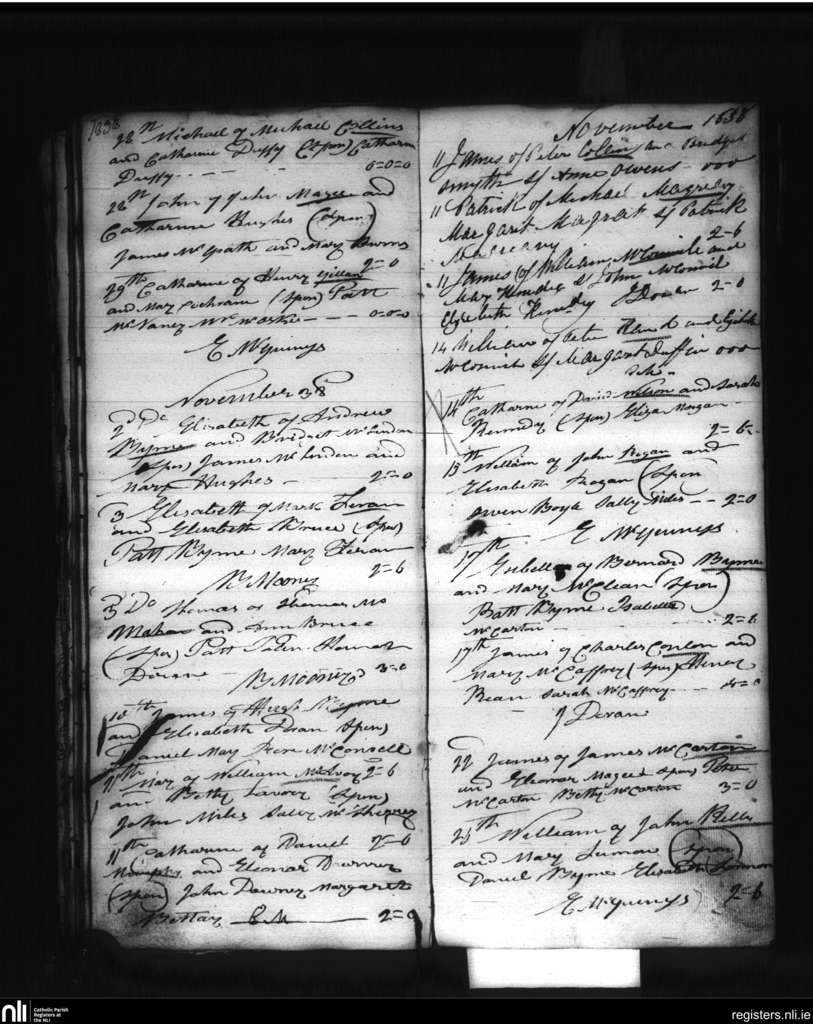 1838
28th Michael of Michael Collins
and Catharine Duffy (Spon) Catharine
Duffy - - - 0=0=0
28th John of John Magee and
Catharine Hughes (Spon)
James McGrath and Mary Burns
2=0
29th Catharine of Henry Gillan
and Mary Cochrane (Spon) Patt
- - - 0=0=0
E McGuinys
November 38
2d Do Elizabeth of Andrew
Byrne and Bridget McLindon
Spon) James McLinden and
Mary Hughes - 2=0
3 Elisabeth of Mark Feran
and Elisabeth Bruce (Spon)
Patt Byrne Mary Feran
2=6
B Mooney
3d Do Thomas of Thomas Mc
Mahan and Ann Bruce
(Spon) Patt
Doran - B Mooney 3=0
10th James of Hugh Byrne
and Elisabeth Feran Spon)
Daniel Mary McConsell
11th Mary of William McIvoy 2=6
and Betty Savory (Spon)
John Miles Sally McSherry
11th Catharine of Daniel 2=6
and Eleonar
(Spon) John Downey Margaret
E M 2=0
November 1838
11 James of Peter Collins and Bridget
Smyth Sf Anne Owens - 000
11 Patrick of Michael Magreevy
Margaret Magrat Sf Patrick
Magreavy 2-6
11 James of William McConvile and
Mary Hendry Sf John McConvil
Elizabeth J Doran 2=0
14 William of Peter and
Sf Margaret Duffin 000
14th
Catharine of David Wilson and Sarah
Kennedy (Spon) Eliza Morgan
2=6
15th William of John Fegan and
Elisabeth Fegan (Spon
Owen Boyle Sally Miles - - 2=0
E McGuinys
17th Isabella of Bernard Byrne
and Mary McClean Spon)
Patt Byrne Isabella
McCarton - 2=6
17th James of Charles Conlon and
Mary McCaffrey (Spon) Henry
Bean Sarah McCaffrey - -
J Doran
22 James of James McCarton
and Eleonar Magee Spon) Peter
McCarton Betty McCarton 3=0
25th William of John Kelly
and Mary Lennon (Spon)
Daniel Byrne Elisabeth Lennon
E McGuinys 2=6
nli
Catholic Parish
Registers at
the NLI
registers.nli.ie